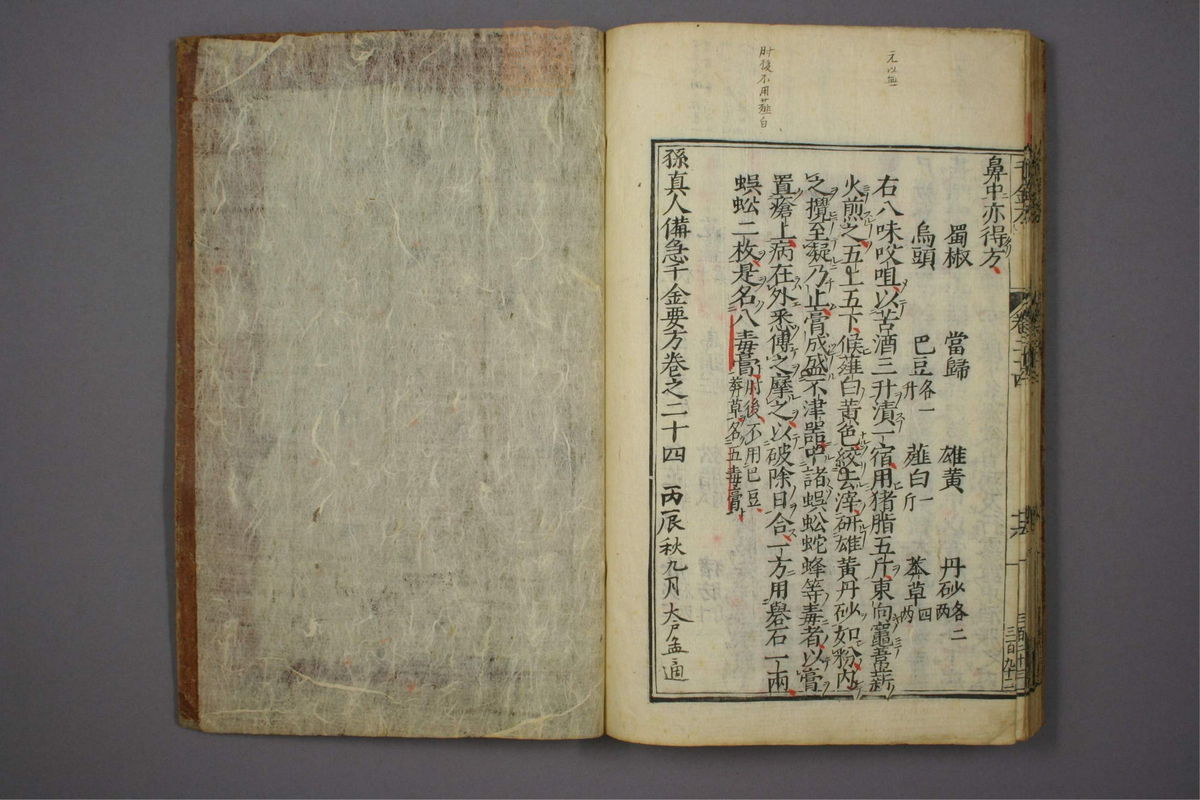 元以無
肘後不用薤白
鼻中亦得方
蜀椒 當歸 雄黄 丹砂各二兩
烏頭 巴豆各一升 薤白一斤 莽草四兩
右八味㕮咀以苦酒三升漬一宿用猪脂五斤東向竈葦薪
火煎之五上五下候薤白黄色絞去滓研雄黄丹砂如粉内
之攪至凝乃止膏成盛不津器中諸蜈蚣蛇蜂等毒者以膏
置瘡上病在外悉傅之摩之以破除日合一方用礜石一兩
蜈蚣二枚是名八毒膏肘後不用巴豆莽草名五毒膏
孫真人備急千金要方卷之二十四 丙辰秋九月大尸孟通